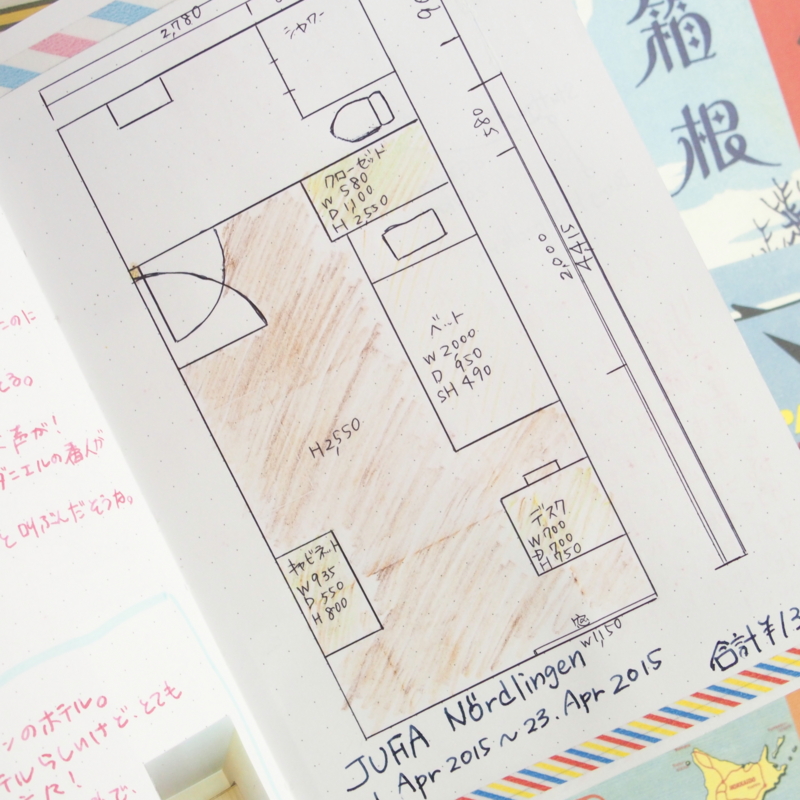 2,780
シャワー
クローゼット
W 580
D 1,100
H 2550
580
4,415
2,000
ベット
W 2000
D 950
SH 490
H2,550
デスク
W700
D 700
H 750
キャビネット
W935
D 550
H 800
窓
W1,150
JUFA Nördlingen
Apr 2015 ~ 23. Apr 2015
合計¥13
箱根
声が!
ダニエルの番人が
と叫ぶんだそうな。
ンのホテル。
テルらしいけど、とても